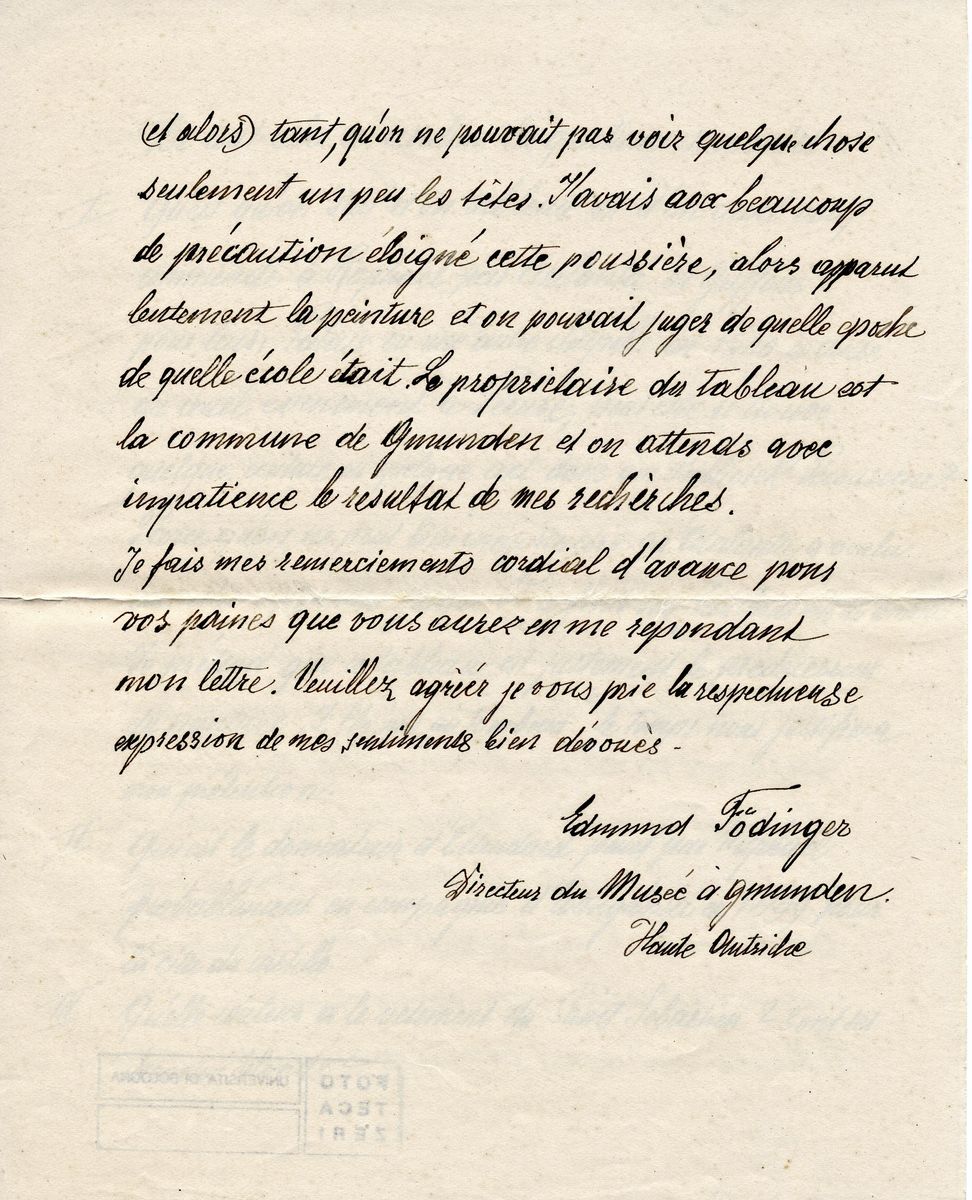 (et alors) tant, qu'on ne pouvait pas voir quelque chose
seulement un peu les têtes. J'avais avec beaucoup
de précaution éloigné cette poussière, alors apparut
lentement la peinture et on pouvait juger de quelle epoche
de quelle école était. Le proprietaire du tableau est
la commune de Gmunden et on attends avec
impatience le resultat de mes rechèrches.
Je fais mes remerciements cordial d'avance pour
vos paines que vous aurez en me repondant
mon lettre. Veuillez agréer je vous prie la respectueuse
expression de mes sentiments bien dévoués -
Edmund Födinger
Directeur du Museé à Gmunden.
Haute Autriche
FOTO
TECA
ZERI
UNIVERSITA' DI BOLOGNA